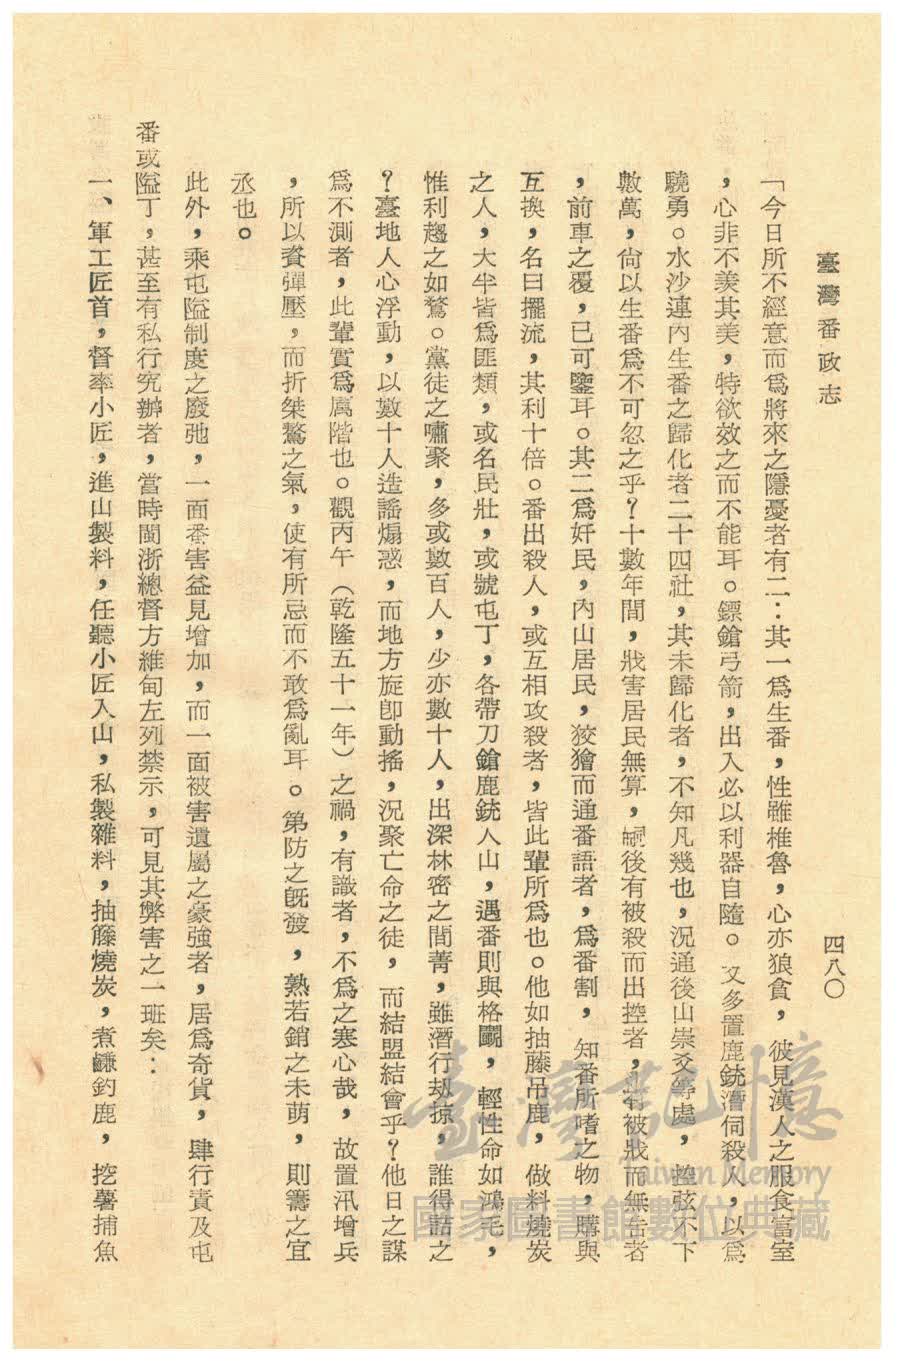 臺灣番政志
四八〇
「今日所不經意而爲將來之隱憂者有二：其一爲生番，性雖椎魯，心亦狼貪，彼見漢人之服食富室
，心非不羨其美，特欲效之而不能耳。鏢鎗弓箭，出入必以利器自隨。又多置鹿銃潛伺殺人，以爲
驍勇。水沙連內生番之歸化者二十四社，其未歸化者，不知凡幾也，況通後山崇爻等處，控弦不下
數萬，尙以生番爲不可忽之乎？十數年間，戕害居民無算，嗣後有被殺而出控者，有被戕而無告者
，前車之覆，已可鑒耳。其二爲奸民，內山居民，狡獪而通番語者，爲番割，知番所嗜之物，購與
互換，名曰擺流，其利十倍。番出殺人，或互相攻殺者，皆此輩所爲也。他如抽藤吊鹿，做料燒炭
之人，大半皆爲匪類，或名民壯，或號屯丁，各帶刀鎗鹿銃入山，遇番則與格鬭，輕性命如鴻毛，
惟利趨之如鶩。黨徒之嘯聚，多或數百人，少亦數十人，出深林密之間菁，雖潛行刼掠，誰得詰之
？臺地人心浮動，以數十人造謠煽惑，而地方旋卽動搖，況聚亡命之徒，而結盟結會乎？他日之謀
爲不測者，此輩實爲厲階也。觀丙午（乾隆五十一年）之禍，有識者，不爲之寒心哉，故置汛增兵
，所以資彈壓，而折桀驁之氣，使有所忌而不敢爲亂耳。第防之旣發，熟若銷之未萌，則籌之宜
丞也。
此外，乘屯隘制度之廢弛，一面番害益見增加，而一面被害遺屬之豪強者，居爲奇貨，肆行責及屯
番或隘丁，甚至有私行究辦者，當時閩浙總督方維甸左列禁示，可見其弊害之一班矣：
一、軍工匠首，督率小匠，進山製料，任聽小匠入山，私製雜料，抽藤燒炭，煮鹻釣鹿，挖薯捕魚
臺灣記憶
Taiwan Memory
國家圖書館數位典藏